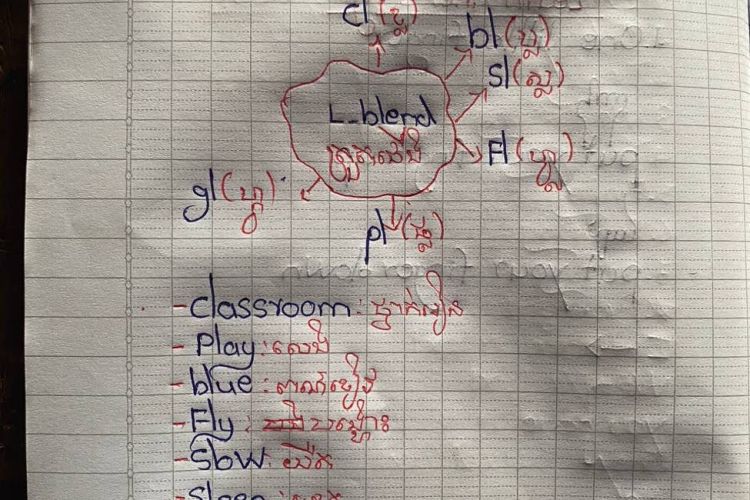 cl (ខ្ល)
bl (ប្ល)
sl (ស្ល)
L-blend
Fl (ហ្វ្ល)
gl (ហ្គ្ល)
pl (ផ្ល)
- classroom: ថ្នាក់រៀន
- Play: លេង
- blue: ពណ៌ខៀវ
- Fly:
- Slow: យឺត
- Sleep: